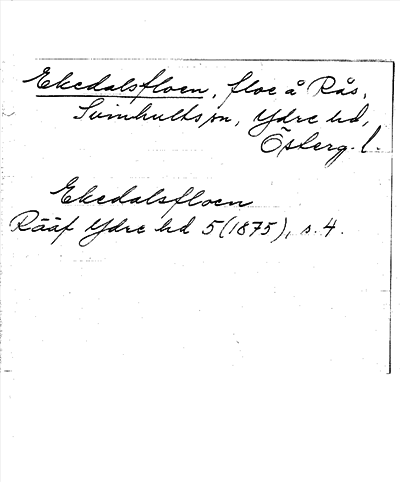 Ekedalsfloen, floe å Rås,
Svinhults sn, Ydre hd,
Österg. l.
Ekedalsfloen
Rääf Ydre hd 5 (1875), s. 4.